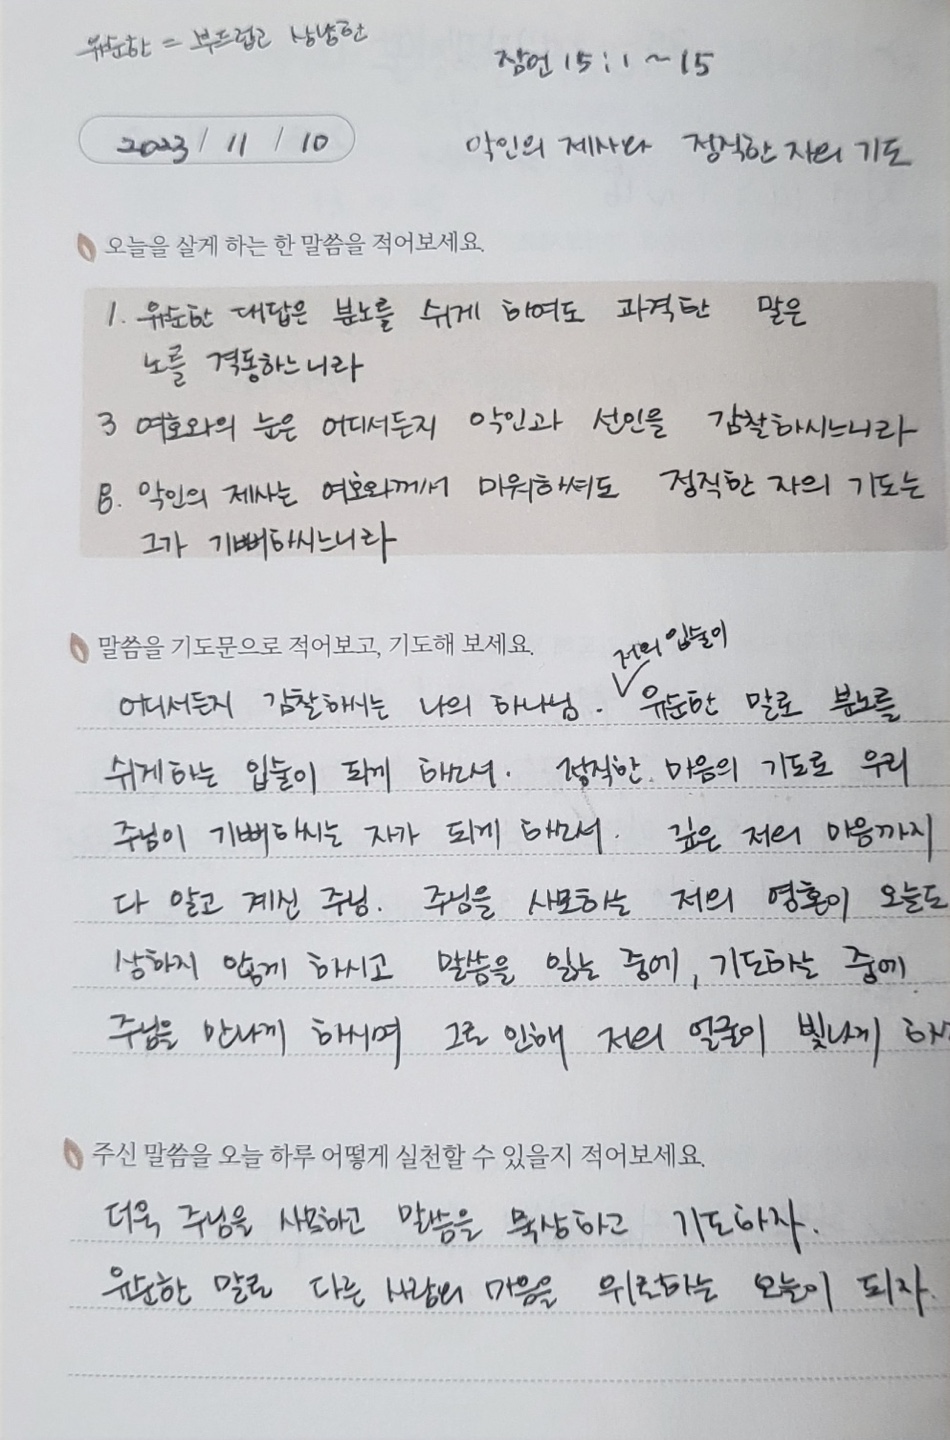 유순한 = 부드럽고 상냥한
잠언 15 : 1 ~ 15
2023 / 11 / 10
악인의 제사와 정직한 자의 기도
오늘을 살게 하는 한 말씀을 적어보세요.
1. 유순한 대답은 분노를 쉬게 하여도 과격한 말은
노를 격동하느니라
3 여호와의 눈은 어디서든지 악인과 선인을 감찰하시느니라
8. 악인의 제사는 여호와께서 미워하셔도 정직한 자의 기도는
그가 기뻐하시느니라
말씀을 기도문으로 적어보고, 기도해 보세요.
저의 입술이
어디서든지 감찰하시는 나의 하나님. 유순한 말로 분노를
쉬게하는 입술이 되게 하소서. 정직한 마음의 기도로 우리
주님이 기뻐하시는 자가 되게 하소서. 깊은 저의 마음까지
다 알고 계신 주님. 주님을 사모하는 저의 영혼이 오늘도
상하지 않게 하시고 말씀을 읽는 중에, 기도하는 중에
주님을 만나게 하시며 그로 인해 저의 얼굴이 빛나게
주신 말씀을 오늘 하루 어떻게 실천할 수 있을지 적어보세요.
더욱 주님을 사모하고 말씀을 묵상하고 기도하자.
유순한 말로 다른 사람의 마음을 위로하는 오늘이 되자.